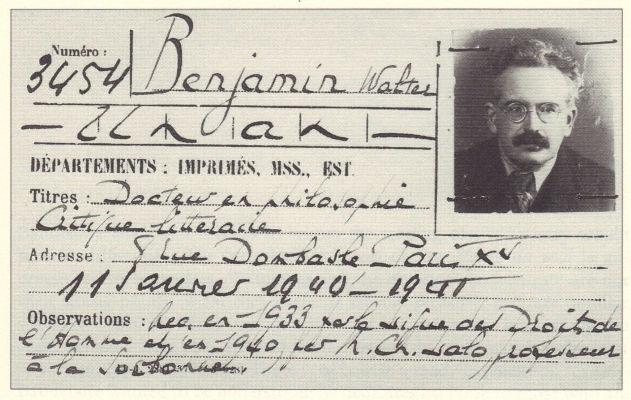 Numéro :
3454 Benjamin Walter
un an
DÉPARTEMENTS : IMPRIMÉS, MSS., EST.
Titres : Docteur en philosophie
Critique littéraire
Adresse : rue Dombasle Paris XV
11 Janvier 1940 - 1941
Observations : Rec. en 1933 par la Ligue des Droits de
l'Homme et en 1940 par M. Ch. Lalo professeur
à la Sorbonne.